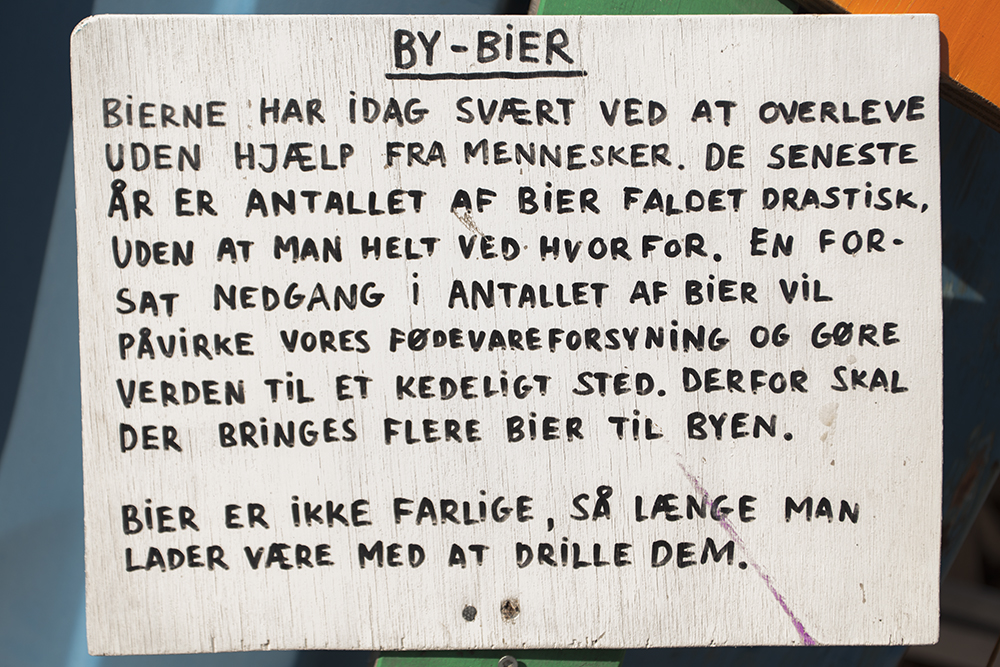 BY-BIER
BIERNE HAR IDAG SVÆRT VED AT OVERLEVE
UDEN HJÆLP FRA MENNESKER. DE SENESTE
ÅR ER ANTALLET AF BIER FALDET DRASTISK,
UDEN AT MAN HELT VED HVORFOR. EN FOR-
SAT NEDGANG I ANTALLET AF BIER VIL
PÅVIRKE VORES FØDEVAREFORSYNING OG GØRE
VERDEN TIL ET KEDELIGT STED. DERFOR SKAL
DER BRINGES FLERE BIER TIL BYEN.
BIER ER IKKE FARLIGE, SÅ LÆNGE MAN
LADER VÆRE MED AT DRILLE DEM.